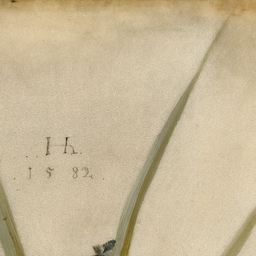 .Hh.
.1582.